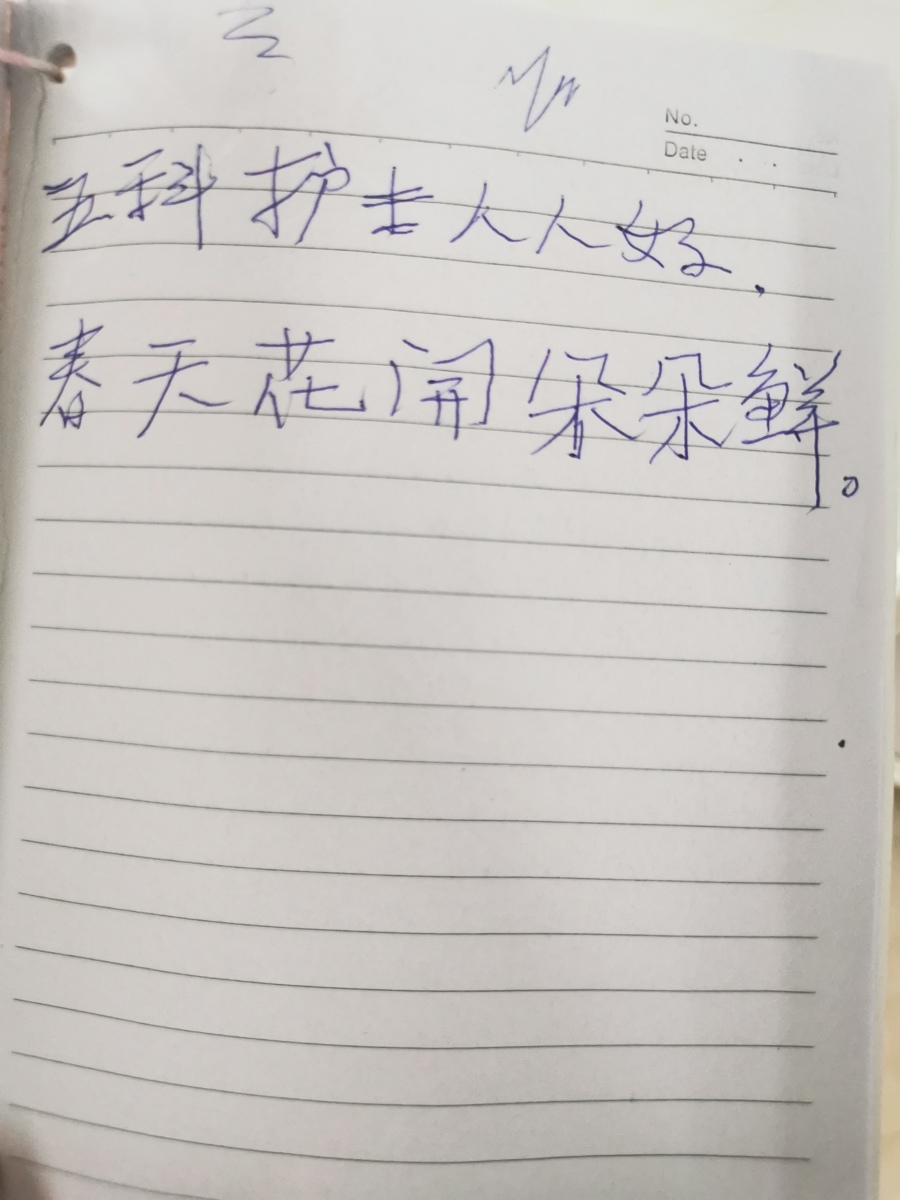 No.
Date
五科护士人人好.
春天花开朵朵鲜。